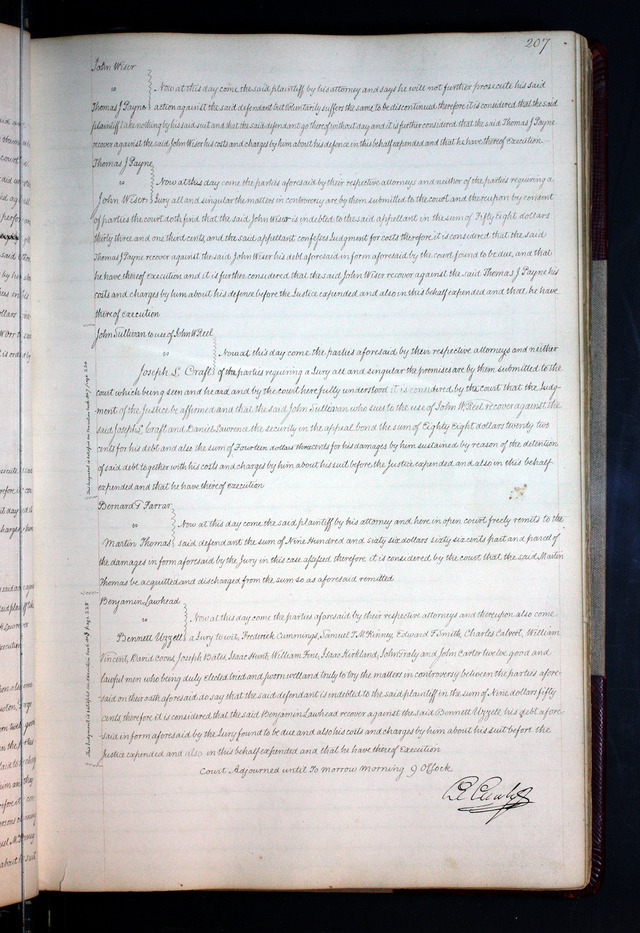 207
John Wiser
vs
Now at this day come the said plaintiff by his attorney and says he will not further prosecute his said
Thomas J Payne action against the said defendant but voluntarily suffers the same to be discontinued therefore it is considered that the said
plaintiff take nothing by his said suit and that the said defendant go thereof without day and it is further considered that the said Thomas J Payne
recover against the said John Wiser his costs and charges by him about his defence in this behalf expended and that he have thereof execution
Thomas J Payne
vs
Now at this day come the parties aforesaid by their respective attorneys and neither of the parties requiring a
John Wiser Jury all and singular the matters in controversy are by them submitted to the court and thereupon by consent
of parties the court doth find that the said John Wiser is indebted to the said appellant in the sum of Fifty Eight dollars
thirty three and one third cents, and the said appellant confesses Judgment for costs therefore it is considered that the said
Thomas J Payne recover against the said John Wiser his debt aforesaid in form aforesaid by the court found to be due, and that
he have thereof execution and it is further considered that the said John Wiser recover against the said Thomas J Payne his
costs and charges by him about his defence before the Justice expended and also in this behalf expended and that he have
thereof execution
John Sullivan to use of John W Reel
vs
Now at this day come the parties aforesaid by their respective attorneys and neither
Joseph S. Craft of the parties requiring a Jury all and singular the premises are by them submitted to the
court which being seen and heard and by the court here fully understood it is considered by the court that the Judg-
ment of the Justice be affirmed and that the said John Sullivan who sues to the use of John W Reel recover against the
said Joseph S. Craft and Daniel Lawrence the security in the appeal bond the sum of Eighty Eight dollars twenty two
cents for his debt and also the sum of Fourteen dollars three cents for his damages by him sustained by reason of the detention
of said debt together with his costs and charges by him about his suit before the Justice expended and also in this behalf
expended and that he have thereof execution
Bernard G Farrar
vs
Now at this day come the said plaintiff by his attorney and here in open court freely remits to the
Martin Thomas said defendant the sum of Nine Hundred and sixty six dollars sixty six cents part and parcel of
the damages in form aforesaid by the Jury in this case assessed therefore it is considered by the court that the said Martin
Thomas be acquitted and discharged from the sum so as aforesaid remitted
Benjamin Lawhead
vs
Now at this day come the parties aforesaid by their respective attorneys and thereupon also come
Bennett Uzzell a Jury to wit, Frederick Cummings, Samuel T. McKinney Edward F Smith, Charles Calvert, William
Vincent, David Joseph Bates, Isaac Hunt, William Fine, Isaac Kirkland, John Graly and John Carter twelve good and
lawful men who being duly elected tried and sworn well and truly to try the matters in controversy between the parties afore-
said on their oath aforesaid so say that the said defendant is indebted to the said plaintiff in the sum of Nine dollars fifty
cents, therefore it is considered that the said Benjamin Lawhead recover against the said Bennett Uzzell his debt afore-
said in form aforesaid by the Jury found to be due and also his costs and charges by him about his suit before the
Justice expended and also in this behalf expended and that he have thereof Execution
Court Adjourned until To morrow morning 9 O'Clock